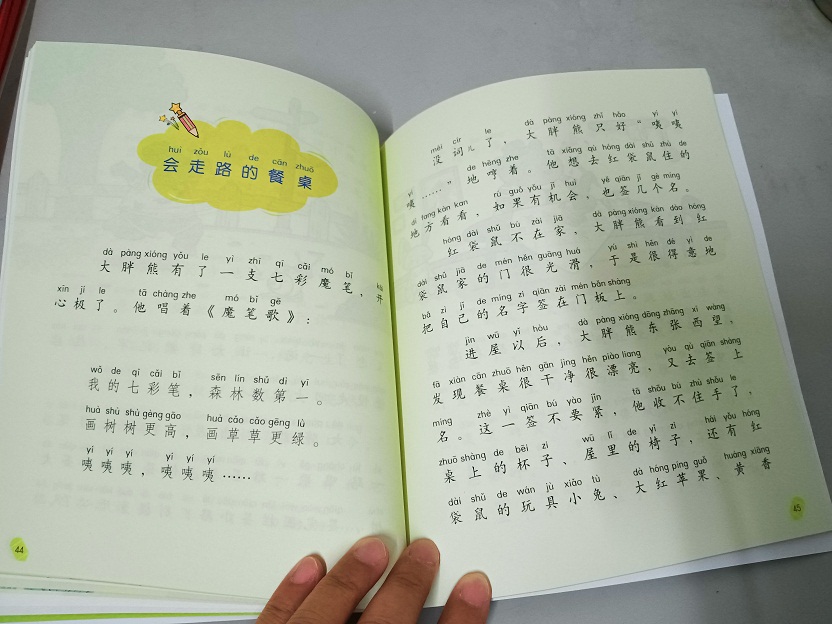 huì zǒu lù de cān zhuō
会走路的餐桌
dà pàng xióng yǒu le yì zhī qī cǎi mó bǐ kāi
大胖熊有了一支七彩魔笔，开
xīn jí le tā chàng zhe mó bǐ gē
心极了。他唱着《魔笔歌》：
wǒ de qī cǎi bǐ sēn lín shǔ dì yī
我的七彩笔，森林数第一。
huà shù shù gèng gāo huà cǎo cǎo gèng lǜ
画树树更高，画草草更绿。
yí yí yí yí yí yí
咦咦咦，咦咦咦……
44
méi cír le dà pàng xióng zhǐ hǎo yí yí
没词儿了，大胖熊只好“咦咦
yí de hēng zhe tā xiǎng qù hóng dài shǔ zhù de
咦……”地哼着。他想去红袋鼠住的
dì fang kàn kan rú guǒ yǒu jī huì yě qiān jǐ gè míng
地方看看，如果有机会，也签几个名。
hóng dài shǔ bú zài jiā dà pàng xióng kàn dào hóng
红袋鼠不在家，大胖熊看到红
dài shǔ jiā de mén hěn guāng huá yú shì hěn dé yì de
袋鼠家的门很光滑，于是很得意地
bǎ zì jǐ de míng zi qiān zài mén bǎn shàng
把自己的名字签在门板上。
jìn wū yǐ hòu dà pàng xióng dōng zhāng xī wàng
进屋以后，大胖熊东张西望，
fā xiàn cān zhuō hěn gān jìng hěn piào liang yòu qù qiān shàng
发现餐桌很干净很漂亮，又去签上
míng zhè yì qiān bú yào jǐn tā shōu bú zhù shǒu le
名。这一签不要紧，他收不住手了，
zhuō shàng de bēi zi wū lǐ de yǐ zi hái yǒu hóng
桌上的杯子、屋里的椅子，还有红
dài shǔ de wán jù xiǎo tù dà hóng píng guǒ huáng xiāng
袋鼠的玩具小兔、大红苹果、黄香
45